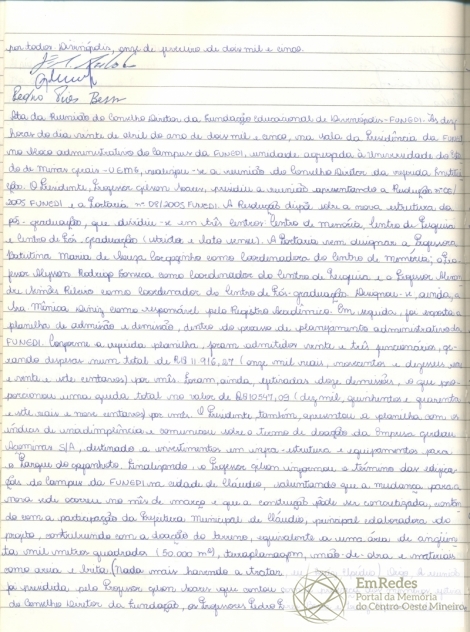 por todos. Divinópolis, onze de fevereiro de dois mil e cinco.
Pedro Pires Bessa
Ata da Reunião do Conselho Diretor da Fundação Educacional de Divinópolis-FUNEDI. Às dez
horas do dia vinte de abril do ano de dois mil e cinco, na sala da Presidência da FUNEDI
no bloco administrativo do campus da FUNEDI, unidade agregada à Universidade do Esta
do de Minas Gerais-UEMG, realizou-se a reunião do Conselho Diretor da referida Institui
ção. O Presidente, Professor Gilson Soares, presidiu a reunião apresentando a Resolução nº 08/
2005 FUNEDI e a Portaria nº 08/2005 FUNEDI. A Resolução dispõe sobre a nova estrutura da
pós-graduação, que dividiu-se em três centros: Centro de memória, Centro de Pesquisa
e Centro de Pós-graduação (stricto e lato sensu). A Portaria vem designar a Professora
Batistina Maria de Sousa Corgozinho como coordenadora do Centro de Memória; o Pro
fessor Alysson Rodrigo Fonseca como coordenador do Centro de Pesquisa e o Professor
Ribeiro como coordenador do Centro de Pós-graduação. Designou-se, ainda, a
Sra Mônica Diniz como responsável pelo Registro Acadêmico. Em seguida, foi exposta a
planilha de admissão e demissão, dentro do processo de planejamento administrativo da
FUNEDI. Conforme a referida planilha, foram admitidos vinte e três funcionários, ge
rando despesas num total de R$ 11.916,27 (onze mil reais, novecentos e dezesseis reais
e vinte e sete centavos) por mês. Foram, ainda, efetivadas doze demissões, o que pro
porcionou uma queda total no valor de R$10547,09 (dez mil, quinhentos e quarenta
e sete reais e nove centavos) por mês. O Presidente também, apresentou a planilha com os
índices de inadimplência e comunicou sobre o termo de doação da Empresa Gerdau
Açominas S/A, destinado a investimentos em infra-estrutura e equipamentos para
o Parque do Gafanhoto. Finalizando, o Professor Gilson informou o término das edifica
ções do campus da FUNEDI na cidade de Cláudio, salientando que a mudança para a
nova sede ocorreu no mês de março e que a construção pôde ser concretizada, contan
do com a participação da Prefeitura Municipal de Cláudio, principal colaboradora do
projeto, contribuindo com a doação do terreno, equivalente a uma área de cinqüen
ta mil metros quadrados (50.000 m²), terraplanagem, mão de obra e materiais
como areia e brita. (Nada mais havendo a tratar, A reunião
foi presidida pelo Professor Gilson Soares que contou
do Conselho Diretor da Fundação, os Professores Pedro
EmRedes
Portal da Memória
do Centro-Oeste Mineiro